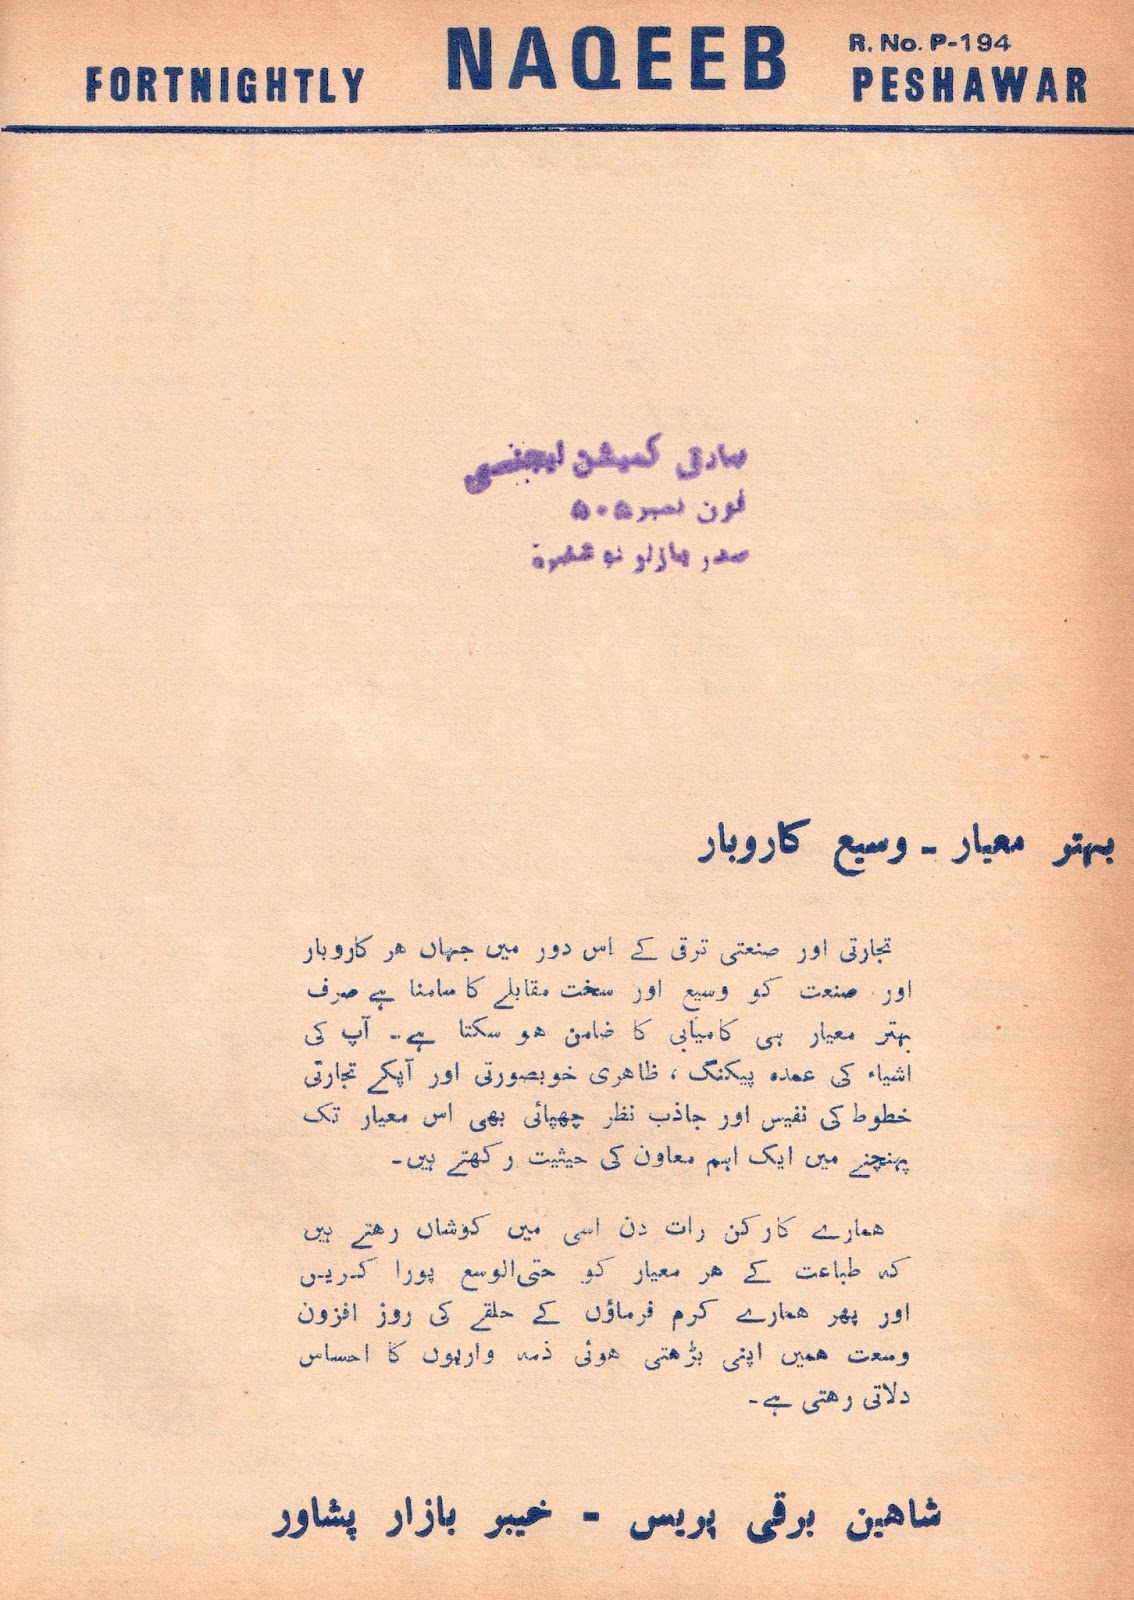 FORTNIGHTLY NAQEEB R. No. P-194
PESHAWAR
کمیشن ایجنسی
فون نمبر ۵۰۵
صدر بازار نوشہرہ
بہتر معیار - وسیع کاروبار
تجارتی اور صنعتی ترقی کے اس دور میں جہاں ہر کاروبار
اور صنعت کو وسیع اور سخت مقابلے کا سامنا ہے صرف
بہتر معیار ہی کامیابی کا ضامن ہو سکتا ہے۔ آپ کی
اشیاء کی عمدہ پیکنگ ، ظاہری خوبصورتی اور آپکے تجارتی
خطوط کی نفیس اور جاذب نظر چھپائی بھی اس معیار تک
پہنچنے میں ایک اہم معاون کی حیثیت رکھتے ہیں۔
ہمارے کارکن رات دن اسی میں کوشاں رہتے ہیں
کہ طباعت کے ہر معیار کو حتی‌الوسع پورا کریں
اور پھر ہمارے کرم فرماؤں کے حلقے کی روز افزون
وسعت ہمیں اپنی بڑھتی ہوئی ذمہ واریوں کا احساس
دلاتی رہتی ہے۔
شاہین برقی پریس - خیبر بازار پشاور